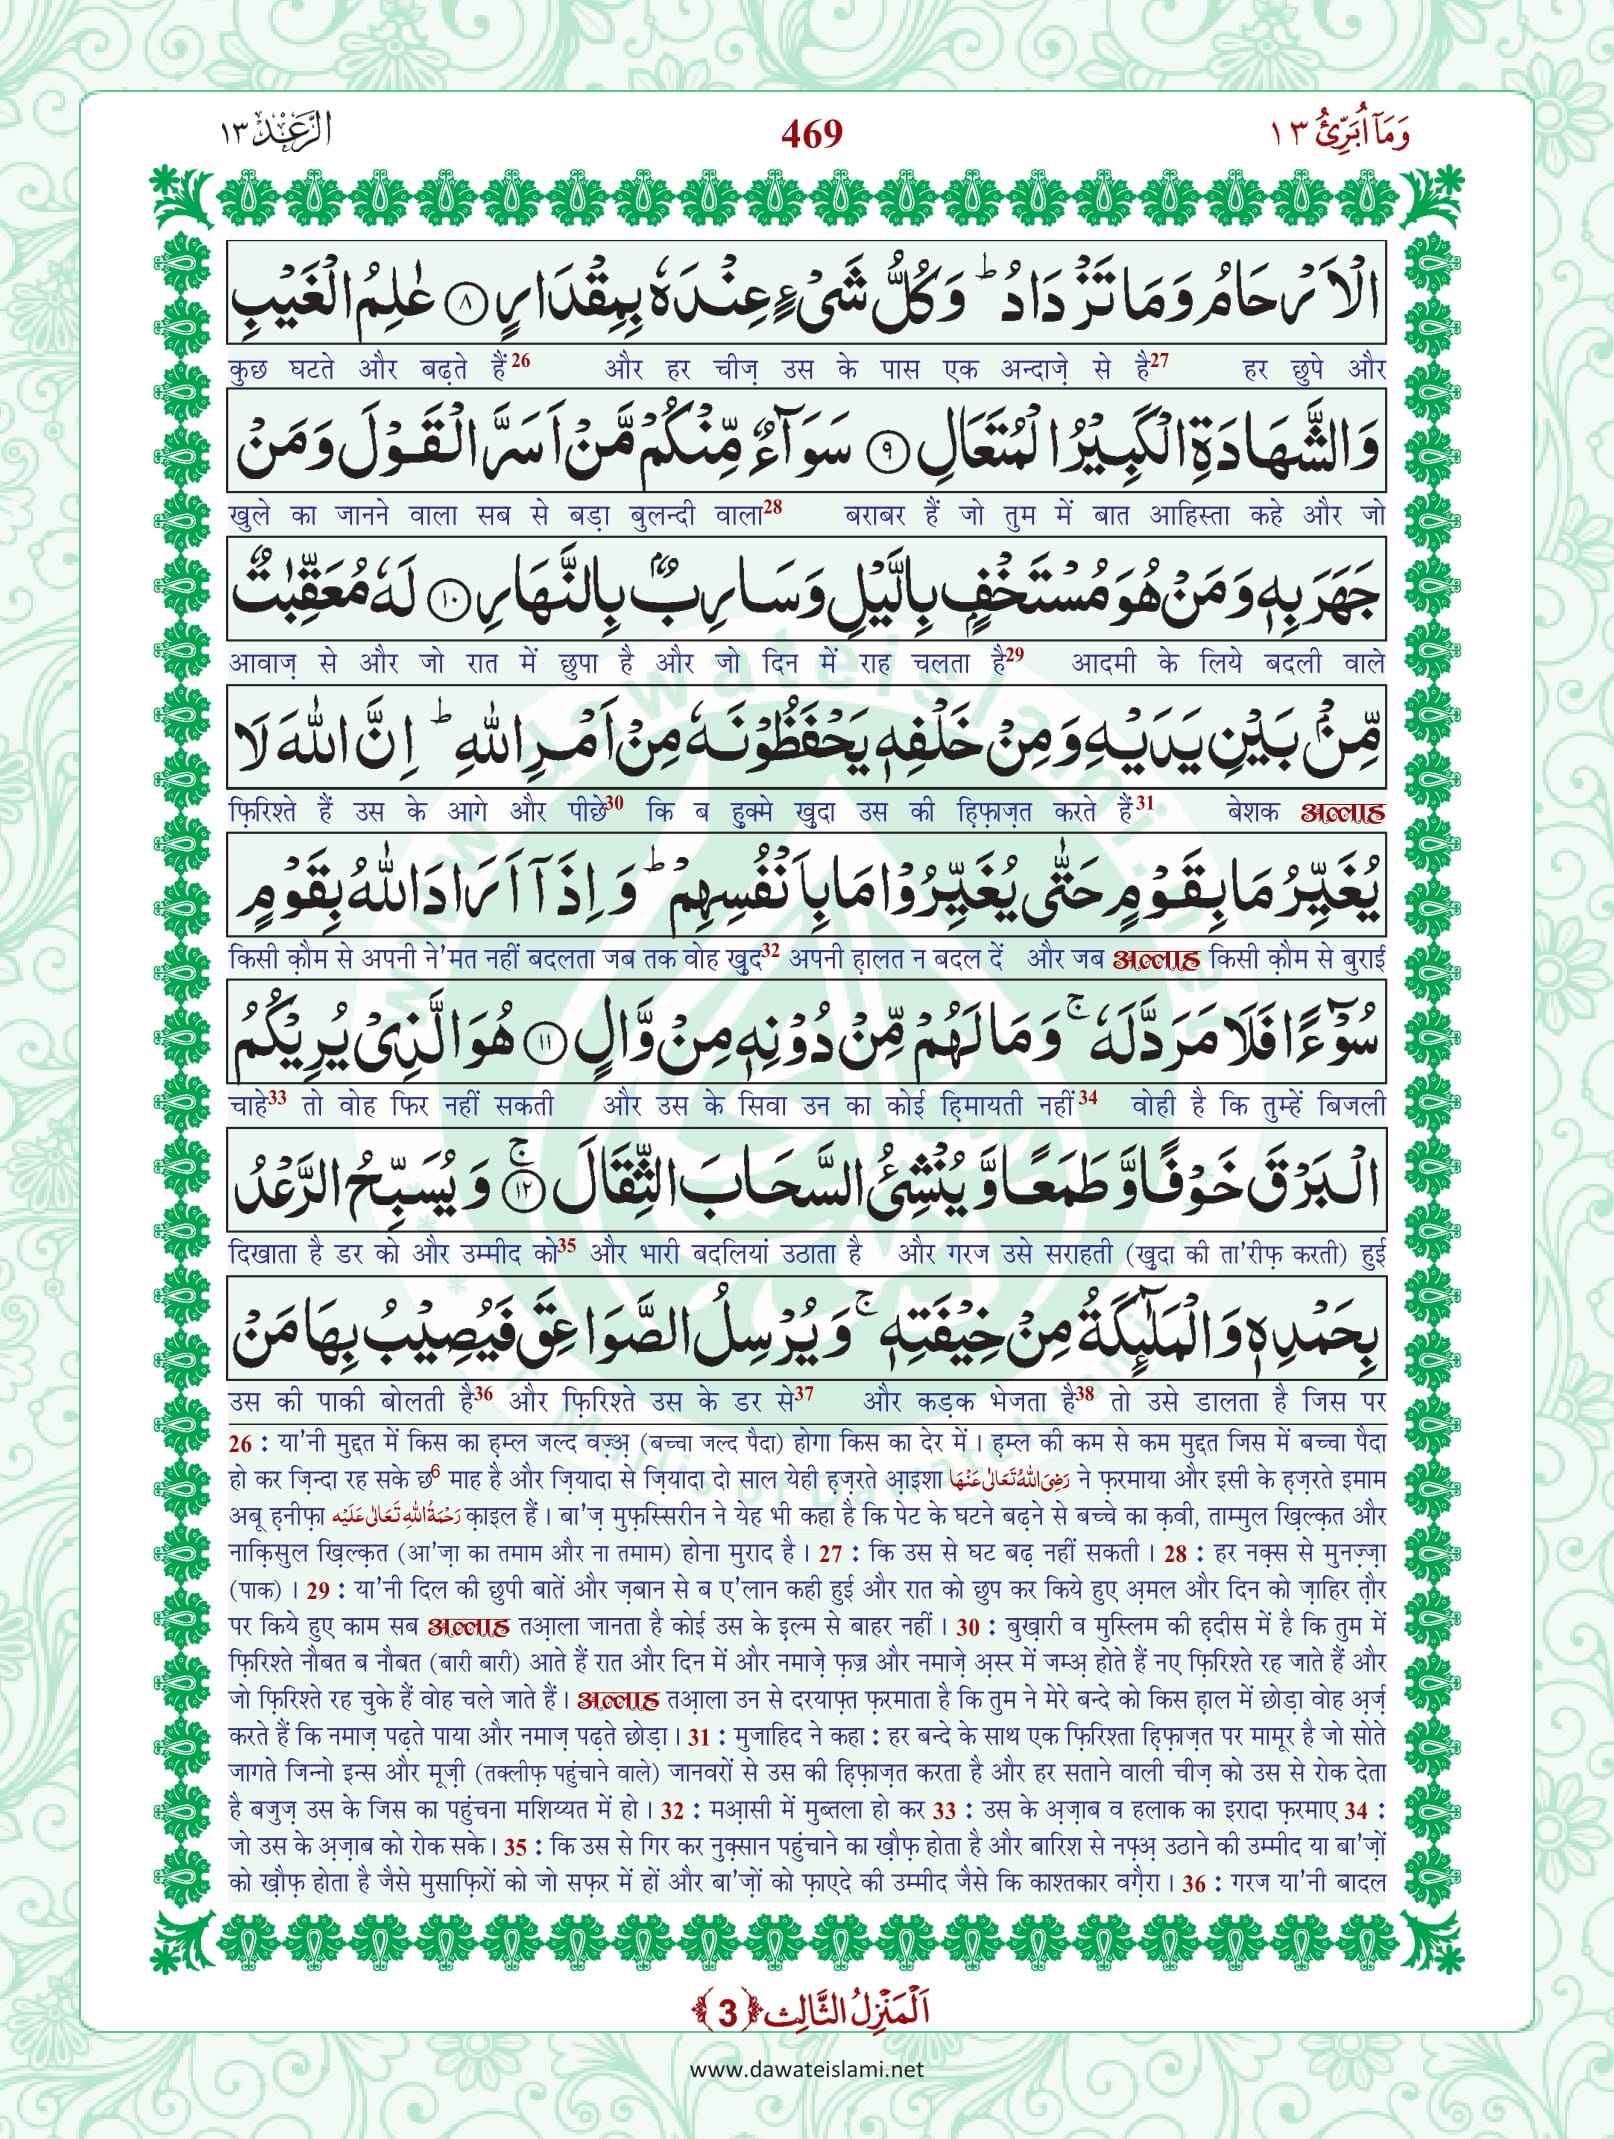 وَمَآ اُبَرِّئُ ١٣
469
الرَّعْد ١٣
الْاَرْحَامُ وَمَا تَزْدَادُ ؕ وَكُلُّ شَیْءٍ عِنْدَهٗ بِمِقْدَارٍ ﴿۸﴾ عٰلِمُ الْغَیْبِ
कुछ घटते और बढ़ते हैं26 और हर चीज़ उस के पास एक अन्दाज़े से है27 हर छुपे और
وَالشَّهَادَةِ الْكَبِیْرُ الْمُتَعَالِ ﴿۹﴾ سَوَآءٌ مِّنْكُمْ مَّنْ اَسَرَّ الْقَوْلَ وَمَنْ
खुले का जानने वाला सब से बड़ा बुलन्दी वाला28 बराबर हैं जो तुम में बात आहिस्ता कहे और जो
جَهَرَ بِهٖ وَمَنْ هُوَ مُسْتَخْفٍۭ بِالَّیْلِ وَسَارِبٌۢ بِالنَّهَارِ ﴿۱۰﴾ لَهٗ مُعَقِّبٰتٌ
आवाज़ से और जो रात में छुपा है और जो दिन में राह चलता है29 आदमी के लिये बदली वाले
مِّنْۢ بَیْنِ یَدَیْهِ وَمِنْ خَلْفِهٖ یَحْفَظُوْنَهٗ مِنْ اَمْرِ اللّٰهِ ؕ اِنَّ اللّٰهَ لَا
फ़िरिश्ते हैं उस के आगे और पीछे30 कि ब हुक्मे ख़ुदा उस की हि़फ़ाज़त करते हैं31 बेशक अल्लाह
یُغَیِّرُ مَا بِقَوْمٍ حَتّٰی یُغَیِّرُوْا مَا بِاَنْفُسِهِمْ ؕ وَ اِذَآ اَرَادَ اللّٰهُ بِقَوْمٍ
किसी क़ौम से अपनी ने'मत नहीं बदलता जब तक वोह ख़ुद32 अपनी ह़ालत न बदल दें और जब अल्लाह किसी क़ौम से बुराई
سُوْٓءًا فَلَا مَرَدَّ لَهٗ ۚ وَمَا لَهُمْ مِّنْ دُوْنِهٖ مِنْ وَّالٍ ﴿۱۱﴾ هُوَ الَّذِیْ یُرِیْكُمُ
चाहे33 तो वोह फिर नहीं सकती और उस के सिवा उन का कोई हि़मायती नहीं34 वोही है कि तुम्हें बिजली
الْبَرْقَ خَوْفًا وَّ طَمَعًا وَّ یُنْشِئُ السَّحَابَ الثِّقَالَ ﴿۱۲﴾ۚ وَ یُسَبِّحُ الرَّعْدُ
दिखाता है डर को और उम्मीद को35 और भारी बदलियां उठाता है और गरज उसे सराहती (ख़ुदा की ता'रीफ़ करती) हुई
بِحَمْدِهٖ وَ الْمَلٰٓىِٕكَةُ مِنْ خِیْفَتِهٖ ۚ وَ یُرْسِلُ الصَّوَاعِقَ فَیُصِیْبُ بِهَا مَنْ
उस की पाकी बोलती है36 और फ़िरिश्ते उस के डर से37 और कड़क भेजता है38 तो उसे डालता है जिस पर
26 : या'नी मुद्दत में किस का ह़म्ल जल्द वज़्अ़ (बच्चा जल्द पैदा) होगा किस का देर में। ह़म्ल की कम से कम मुद्दत जिस में बच्चा पैदा
हो कर ज़िन्दा रह सके छ6 माह है और ज़ियादा से ज़ियादा दो साल येही ह़ज़रते आ़इशा رَضِیَ اللّٰهُ تَعَالٰی عَنْهَا ने फ़रमाया और इसी के ह़ज़रते इमाम
अबू ह़नीफ़ा رَحْمَةُ اللّٰهِ تَعَالٰی عَلَیْه क़ाइल हैं। बा'ज़ मुफ़स्सिरीन ने येह भी कहा है कि पेट के घटने बढ़ने से बच्चे का क़वी, ताम्मुल ख़िल्क़त और
नाक़िसुल ख़िल्क़त (आ'ज़ा का तमाम और ना तमाम) होना मुराद है। 27 : कि उस से घट बढ़ नहीं सकती। 28 : हर नक़्स से मुनज़्ज़ा
(पाक)। 29 : या'नी दिल की छुपी बातें और ज़बान से ब ए'लान कही हुई और रात को छुप कर किये हुए अ़मल और दिन को ज़ाहिर त़ौर
पर किये हुए काम सब अल्लाह तआ़ला जानता है कोई उस के इ़ल्म से बाहर नहीं। 30 : बुख़ारी व मुस्लिम की ह़दीस में है कि तुम में
फ़िरिश्ते नौबत ब नौबत (बारी बारी) आते हैं रात और दिन में और नमाज़े फ़ज्र और नमाज़े अ़स्र में जम्अ़ होते हैं नए फ़िरिश्ते रह जाते हैं और
जो फ़िरिश्ते रह चुके हैं वोह चले जाते हैं। अल्लाह तआ़ला उन से दरयाफ़्त फ़रमाता है कि तुम ने मेरे बन्दे को किस ह़ाल में छोड़ा वोह अ़र्ज़
करते हैं कि नमाज़ पढ़ते पाया और नमाज़ पढ़ते छोड़ा। 31 : मुजाहिद ने कहा : हर बन्दे के साथ एक फ़िरिश्ता हि़फ़ाज़त पर मामूर है जो सोते
जागते जिन्नो इन्स और मूज़ी (तक्लीफ़ पहुंचाने वाले) जानवरों से उस की हि़फ़ाज़त करता है और हर सताने वाली चीज़ को उस से रोक देता
है बजुज़ उस के जिस का पहुंचना मशिय्यत में हो। 32 : मआ़सी में मुब्तला हो कर 33 : उस के अ़ज़ाब व हलाक का इरादा फ़रमाए 34 :
जो उस के अ़ज़ाब को रोक सके। 35 : कि उस से गिर कर नुक़्सान पहुंचाने का ख़ौफ़ होता है और बारिश से नफ़्अ़ उठाने की उम्मीद या बा'ज़ों
को ख़ौफ़ होता है जैसे मुसाफ़िरों को जो सफ़र में हों और बा'ज़ों को फ़ाएदे की उम्मीद जैसे कि काश्तकार वग़ैरा। 36 : गरज या'नी बादल
اَلْمَنْزِلُ الثَّالِث ﴿3﴾
www.dawateislami.net